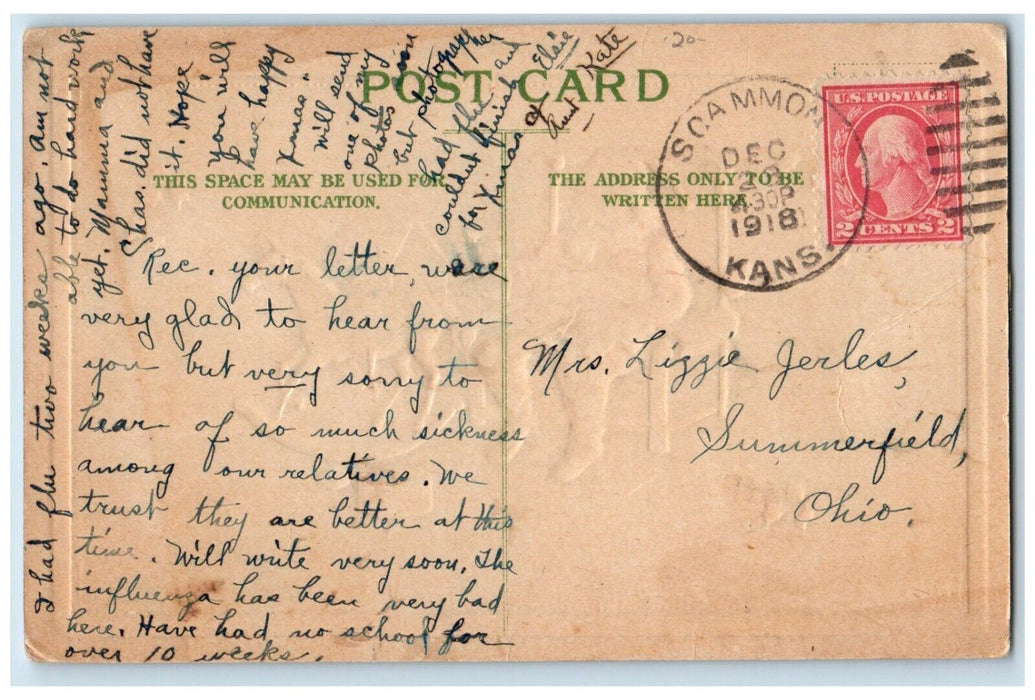 POST CARD
THIS SPACE MAY BE USED FOR
COMMUNICATION.
THE ADDRESS ONLY TO BE
WRITTEN HERE.
-20-
SCAMMON
DEC
30P
1918
KANS.
U.S. POSTAGE
2 CENTS 2
Mrs. Lizzie Jerles,
Summerfield,
Ohio.
Rec. your letter, were
very glad to hear from
you but very sorry to
hear of so much sickness
among our relatives. We
trust they are better at this
time. Will write very soon. The
influenza has been very bad
here. Have had no school for
over 10 weeks.
I had flu two weeks ago. am not
able to do hard work
yet. Mamma and
Chas. did not have
it. Hope
you will
have happy
Xmas"
Will send
one of my
photos soon
but photographer
had flu and
couldn't finish
for Xmas
Elsie
Aunt Kate